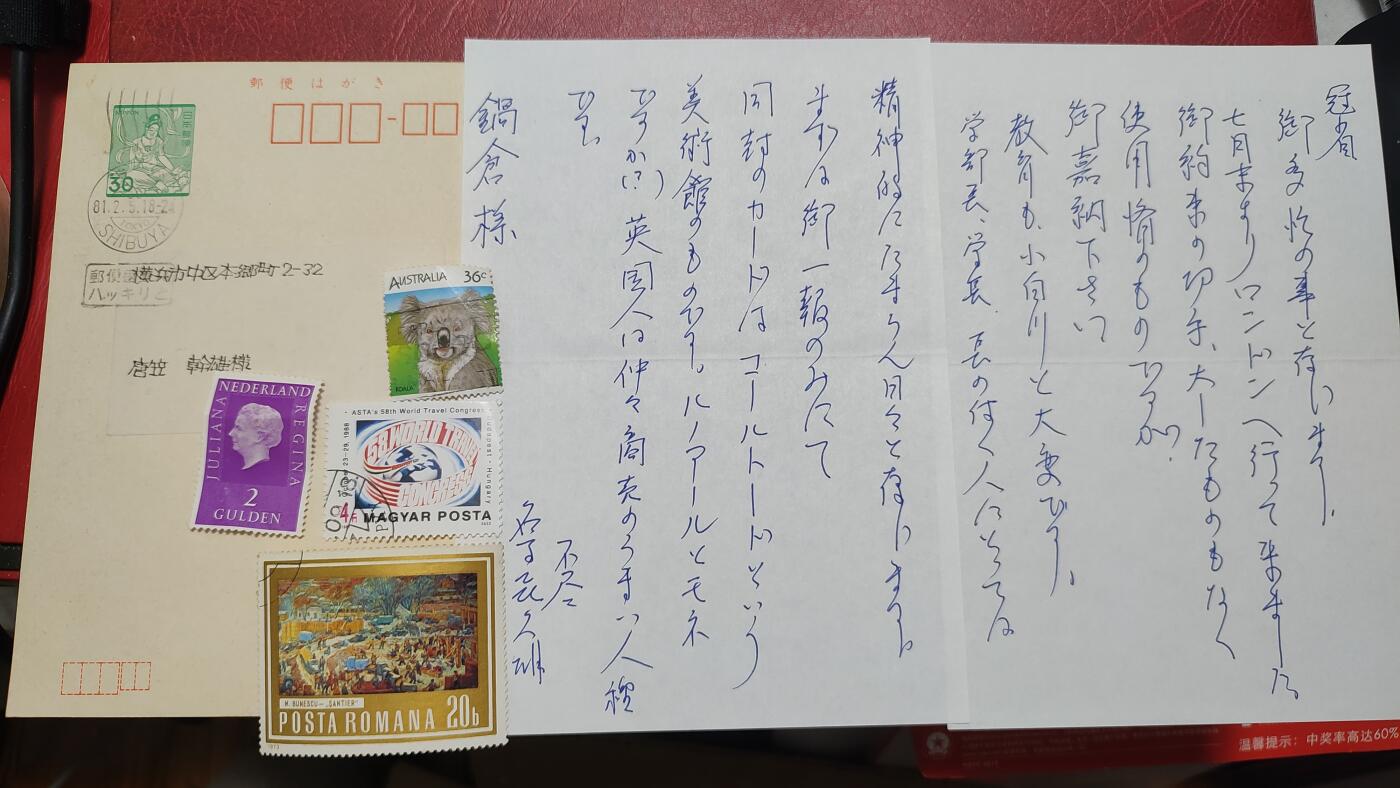 郵便はがき
日本郵便
NIPPON
30
81.2.5.18-24
SHIBUYA
郵便
ハッキリと
横浜市中区本郷町2-32
唐笠 幹雄様
AUSTRALIA 36c
KOALA
NEDERLAND
JULIANA
REGINA
2
GULDEN
ASTA's 58th World Travel Congress
October 23-29, 1988
Budapest - Hungary
58 WORLD TRAVEL
CONGRESS
4Ft
MAGYAR POSTA
M. BUNESCU — „ŞANTIER"
POSTA ROMANA 20b
1973
冠省
御多忙の事と存じます。
七月末よりロンドンへ行って来ました。
御約束の切手、大したものもなく
使用済のものですが、
御嘉納下さい
教育も、小白川も大変です。
学部長、学長、長の付く人にとっては
精神的にたまらん日々と存じます。
まずは御一報のみにて
同封のカードはコールトードという
美術館のものです。ルノアールとモネ
ですか(?) 英国人は仲々商売のうまい人種
です。
不尽
鍋倉様
温馨提示：中奖率高达60%